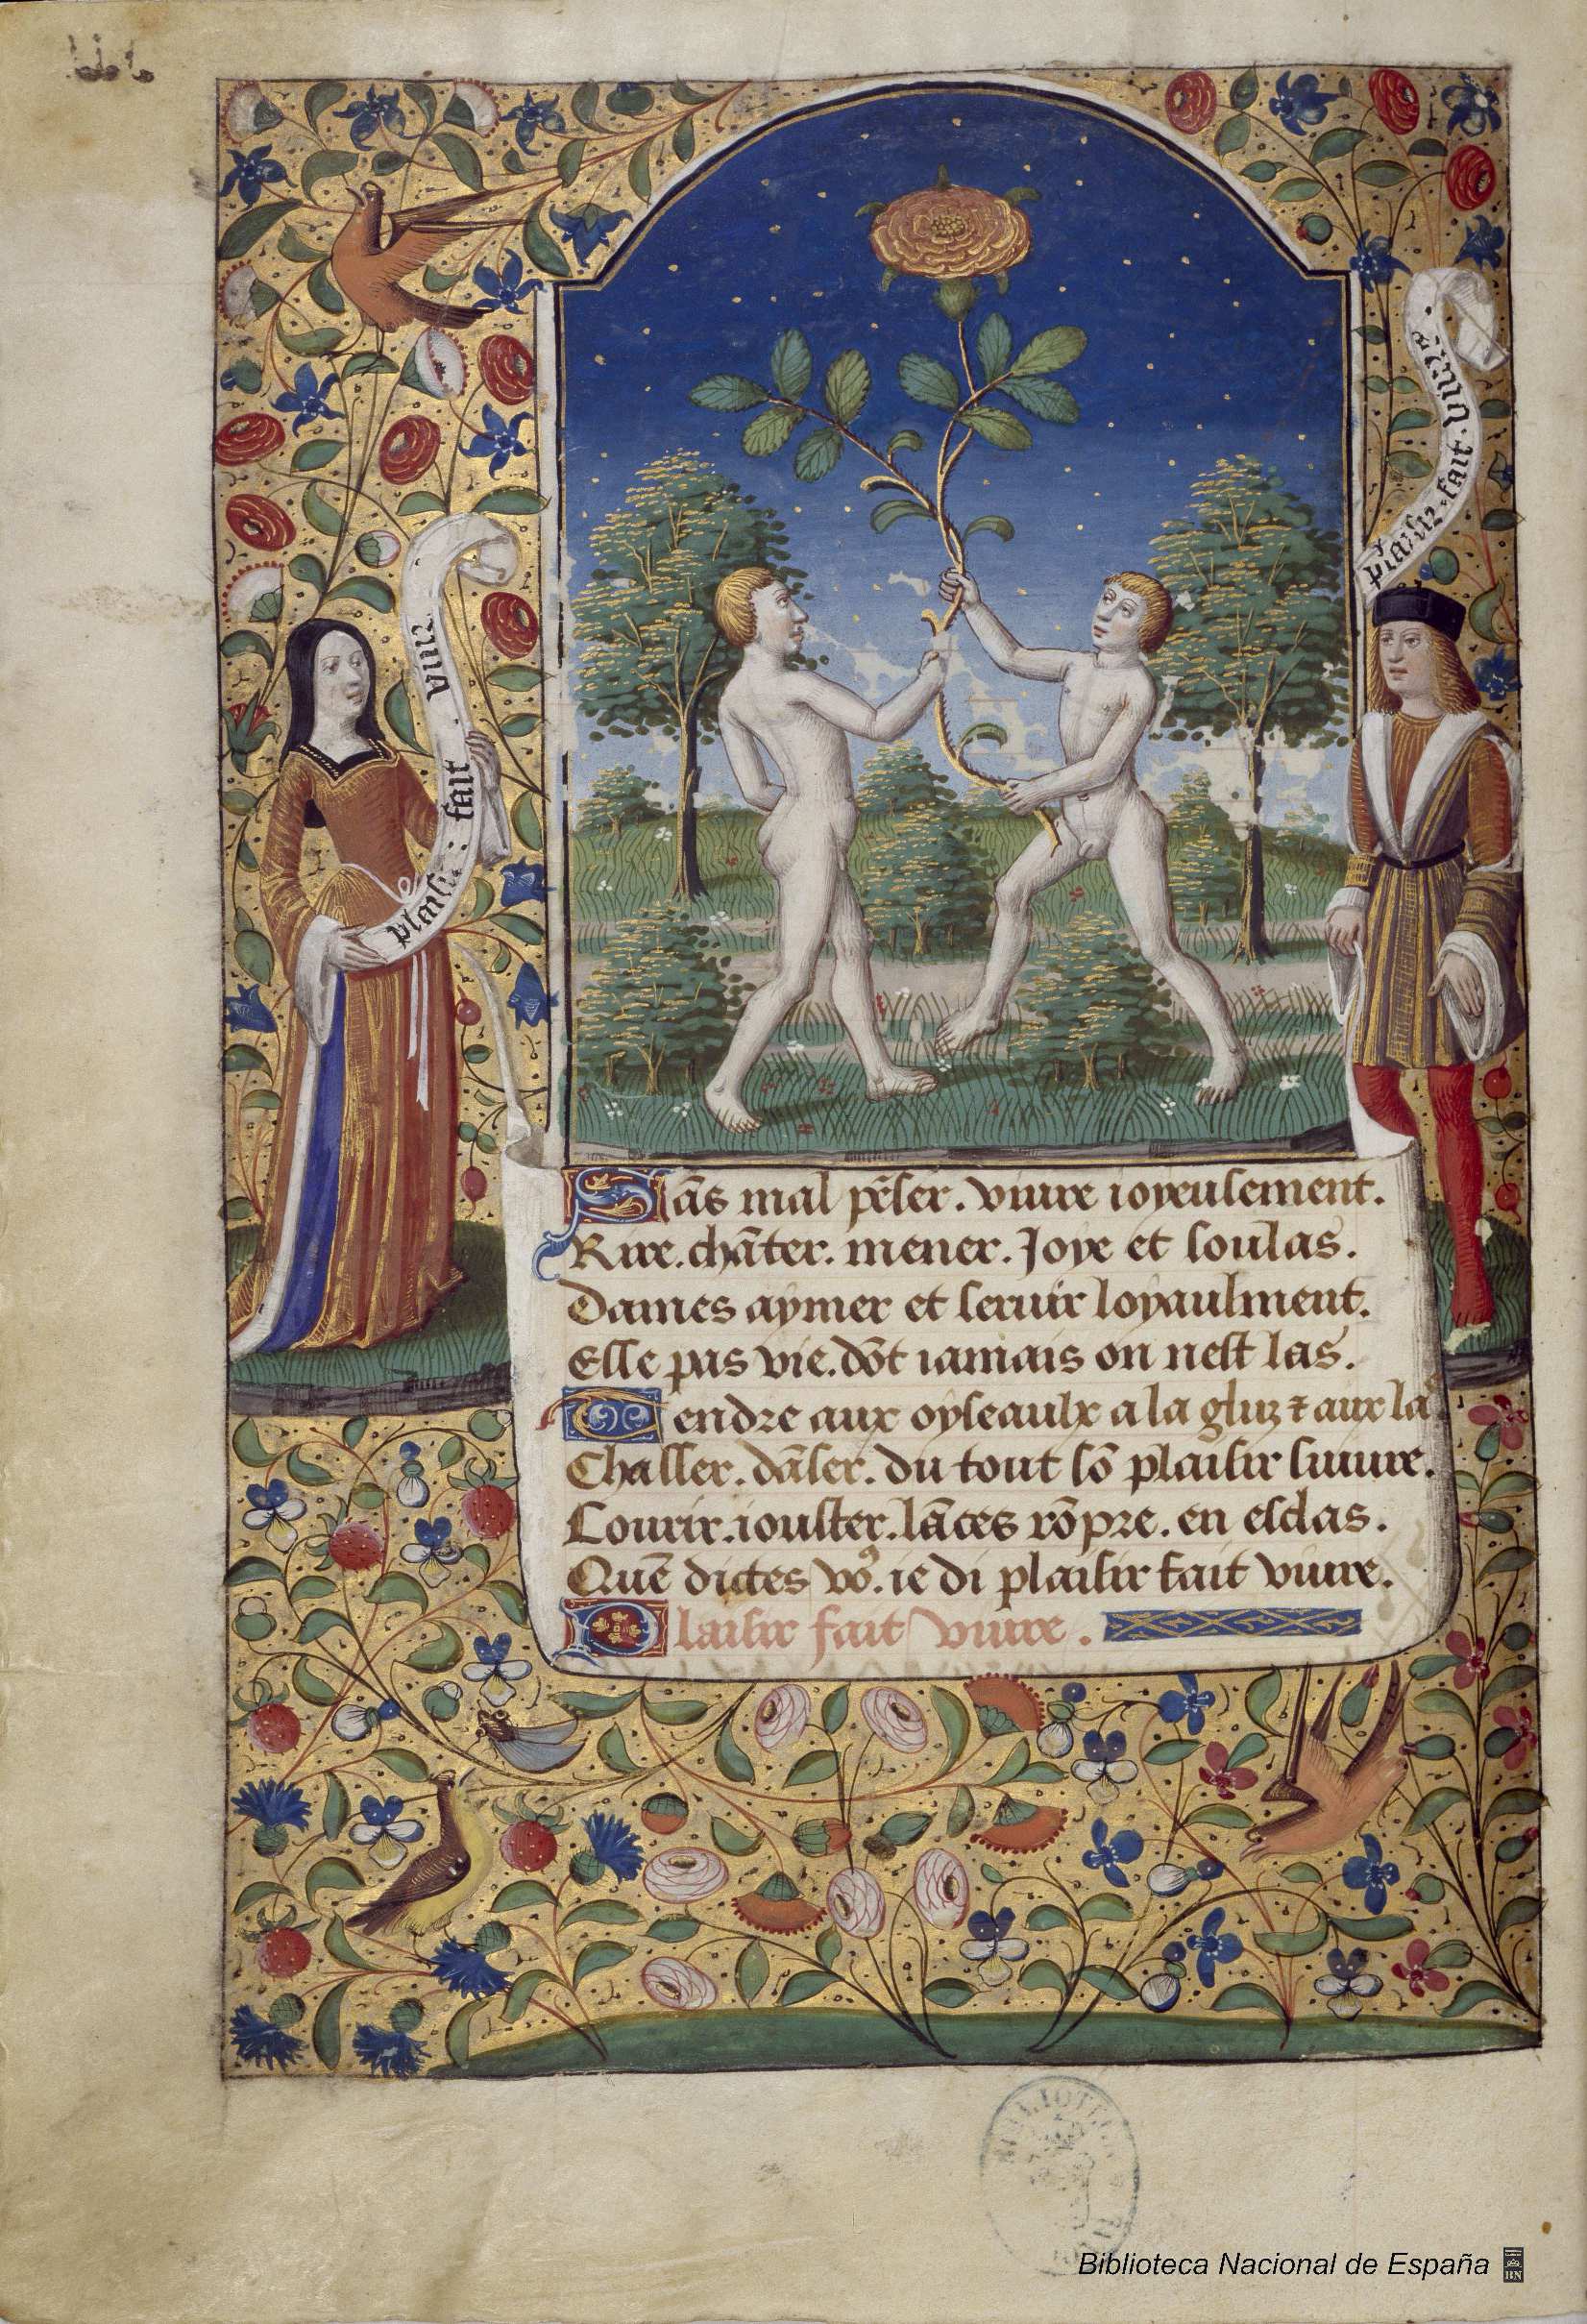 plaisir : fait . vivre
plaisir . fait . vivre .
Sãs mal pẽser . viure ioyeusement .
Rire . chãter . mener . Joye et soulas .
Dames aymer et seruir loyaulment .
Esse pas vie . dõt iamais on nest las .
Tendre aux oyseaulx a la gluz ⁊ aux las
Chasser . dãser . du tout sõ plaisir suiure .
Courir . iouster . lãces rõpre . en esclas .
Quẽ dictes voꝰ . ie di plaisir fait viure .
Plaisir fait viure .
Biblioteca Nacional de España
BN